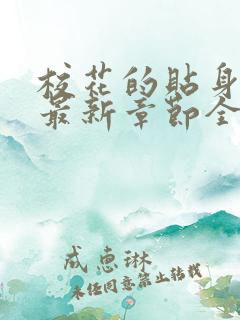 校花的贴身
最新章节全
成惠琳
未经同意禁止转载